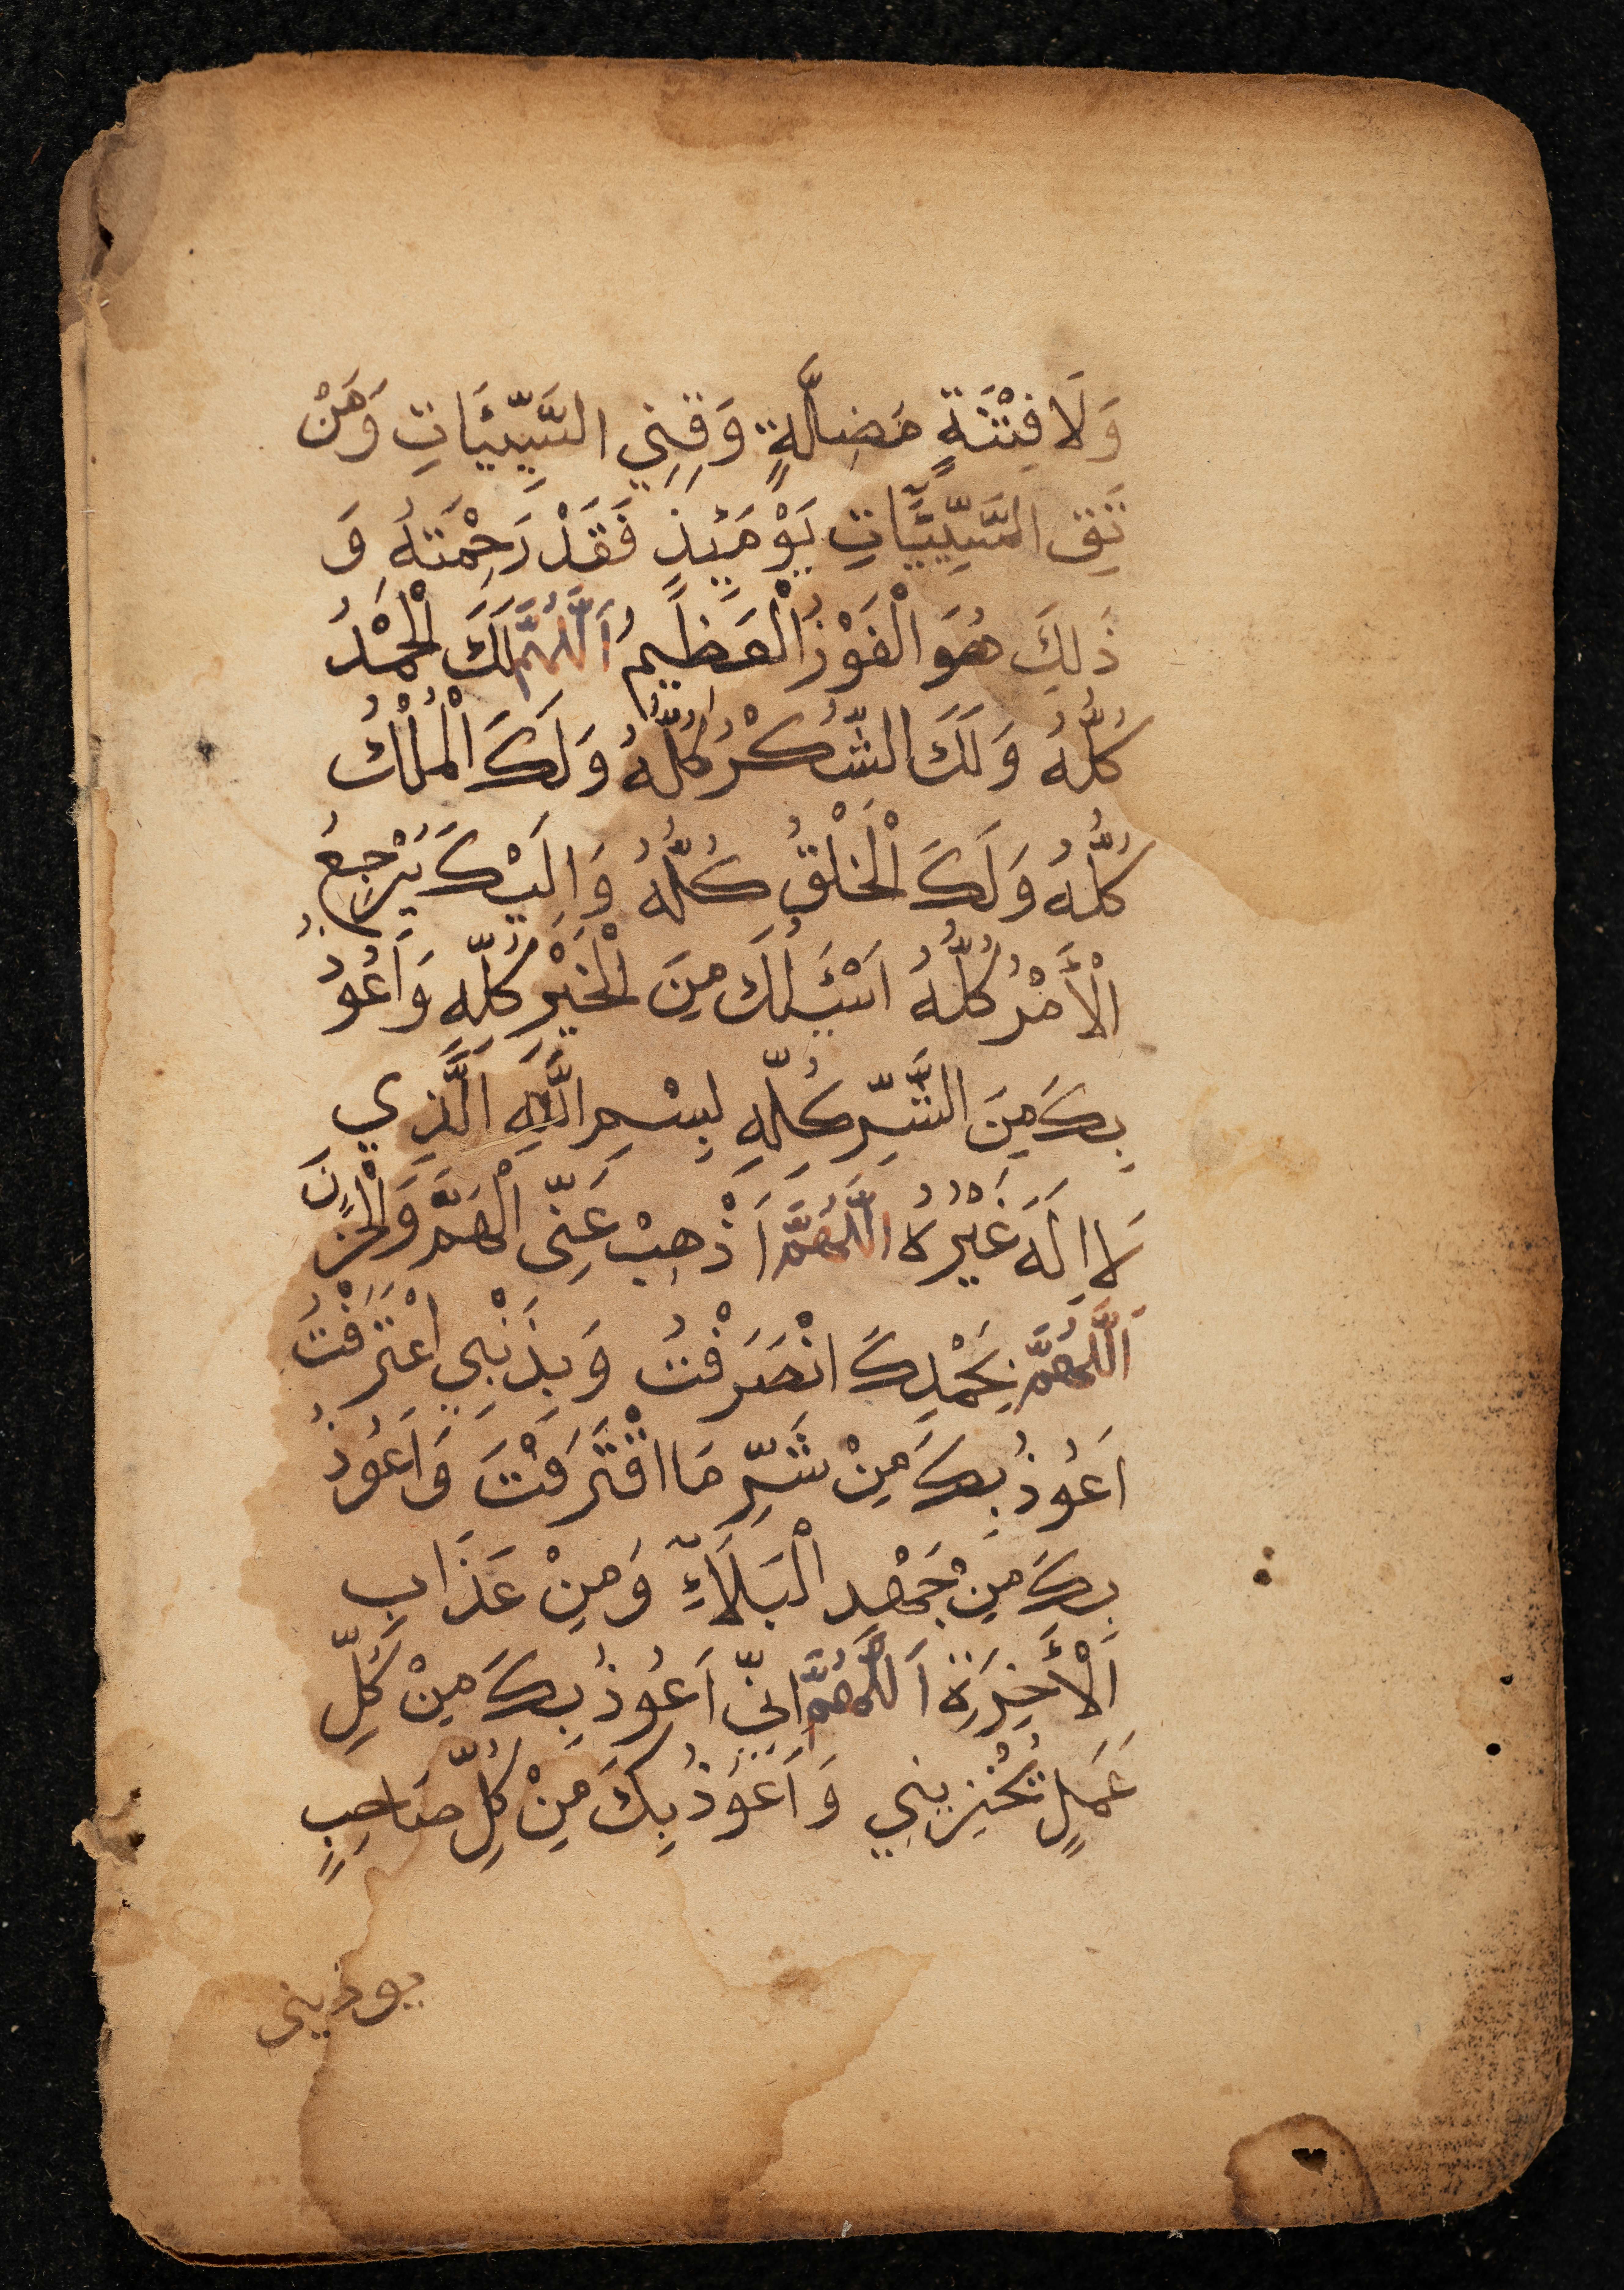 وَلَا فِتْنَةٍ مَضِلَّةٍ وَقِنِي السَّيِّئَاتِ وَمَنْ
تَقِ السَّيِّئَاتِ يَوْمَئِذٍ فَقَدْ رَحِمْتَهُ وَ
ذَلِكَ هُوَ الْفَوْزُ الْعَظِيمُ اَللّٰهُمَّ لَكَ الْحَمْدُ
كُلُّهُ وَلَكَ الشُّكْرُ كُلُّهُ وَلَكَ الْمُلْكُ
كُلُّهُ وَلَكَ الْخَلْقُ كُلُّهُ وَاِلَيْكَ يَرْجِعُ
الْأَمْرُ كُلُّهُ اَسْئَلُكَ مِنَ الْخَيْرِ كُلِّهِ وَاَعُوذُ
بِكَ مِنَ الشَّرِّ كُلِّهِ بِسْمِ اللَّهِ الَّذِي
لَا اِلَهَ غَيْرُهُ اَللَّهُمَّ اَذْهِبْ عَنِّى الْهَمَّ وَالْحَزَنَ
اَللَّهُمَّ بِحَمْدِكَ انْصَرَفْتُ وَبِذَنْبِي اعْتَرَفْتُ
اَعُوذُ بِكَ مِنْ شَرِّ مَا اقْتَرَفْتَ وَاَعُوذُ
بِكَ مِنْ جَهْدِ الْبَلَآءِ وَمِنْ عَذَابِ
الْأَخِرَةِ اَللَّهُمَّ اِنِّي اَعُوذُ بِكَ مِنْ كُلِّ
عَمَلٍ تُخْزِينِي وَاَعُوذُ بِكَ مِنْ كُلِّ صَاحِبٍ
يوذينى